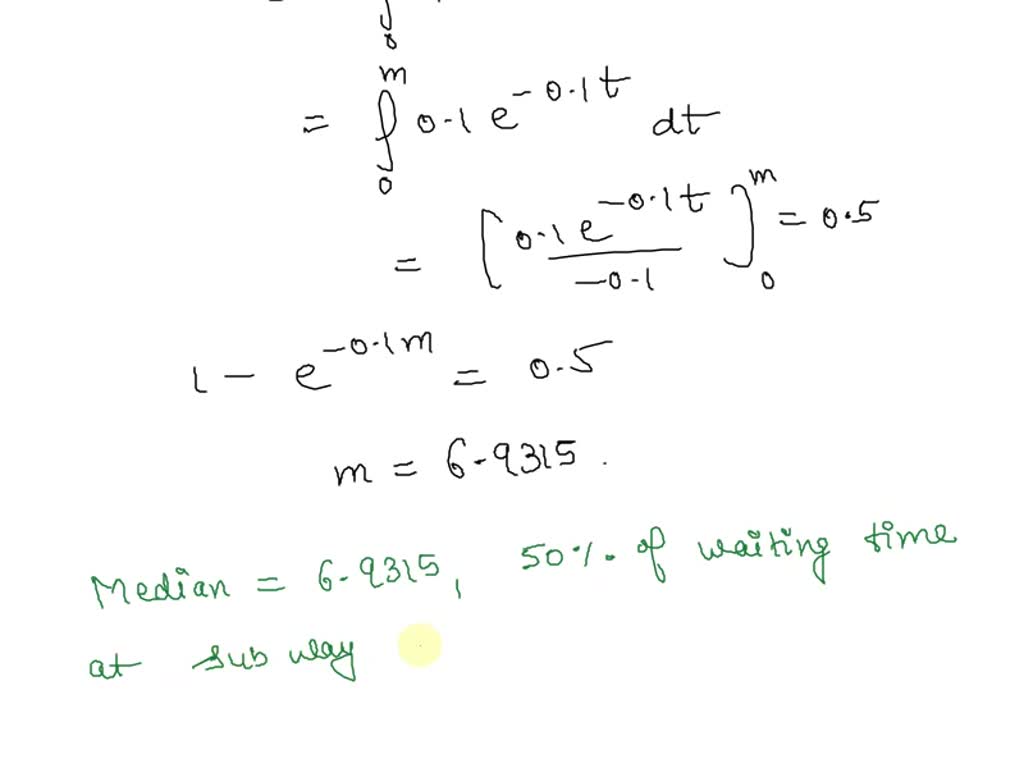 0
m
= ∫ 0.1 e^-0.1t dt
0
= [0.1 e^-0.1t / -0.1]_0^m = 0.5
1 - e^-0.1m = 0.5
m = 6.9315.
Median = 6.9315, 50% of waiting time
at subway